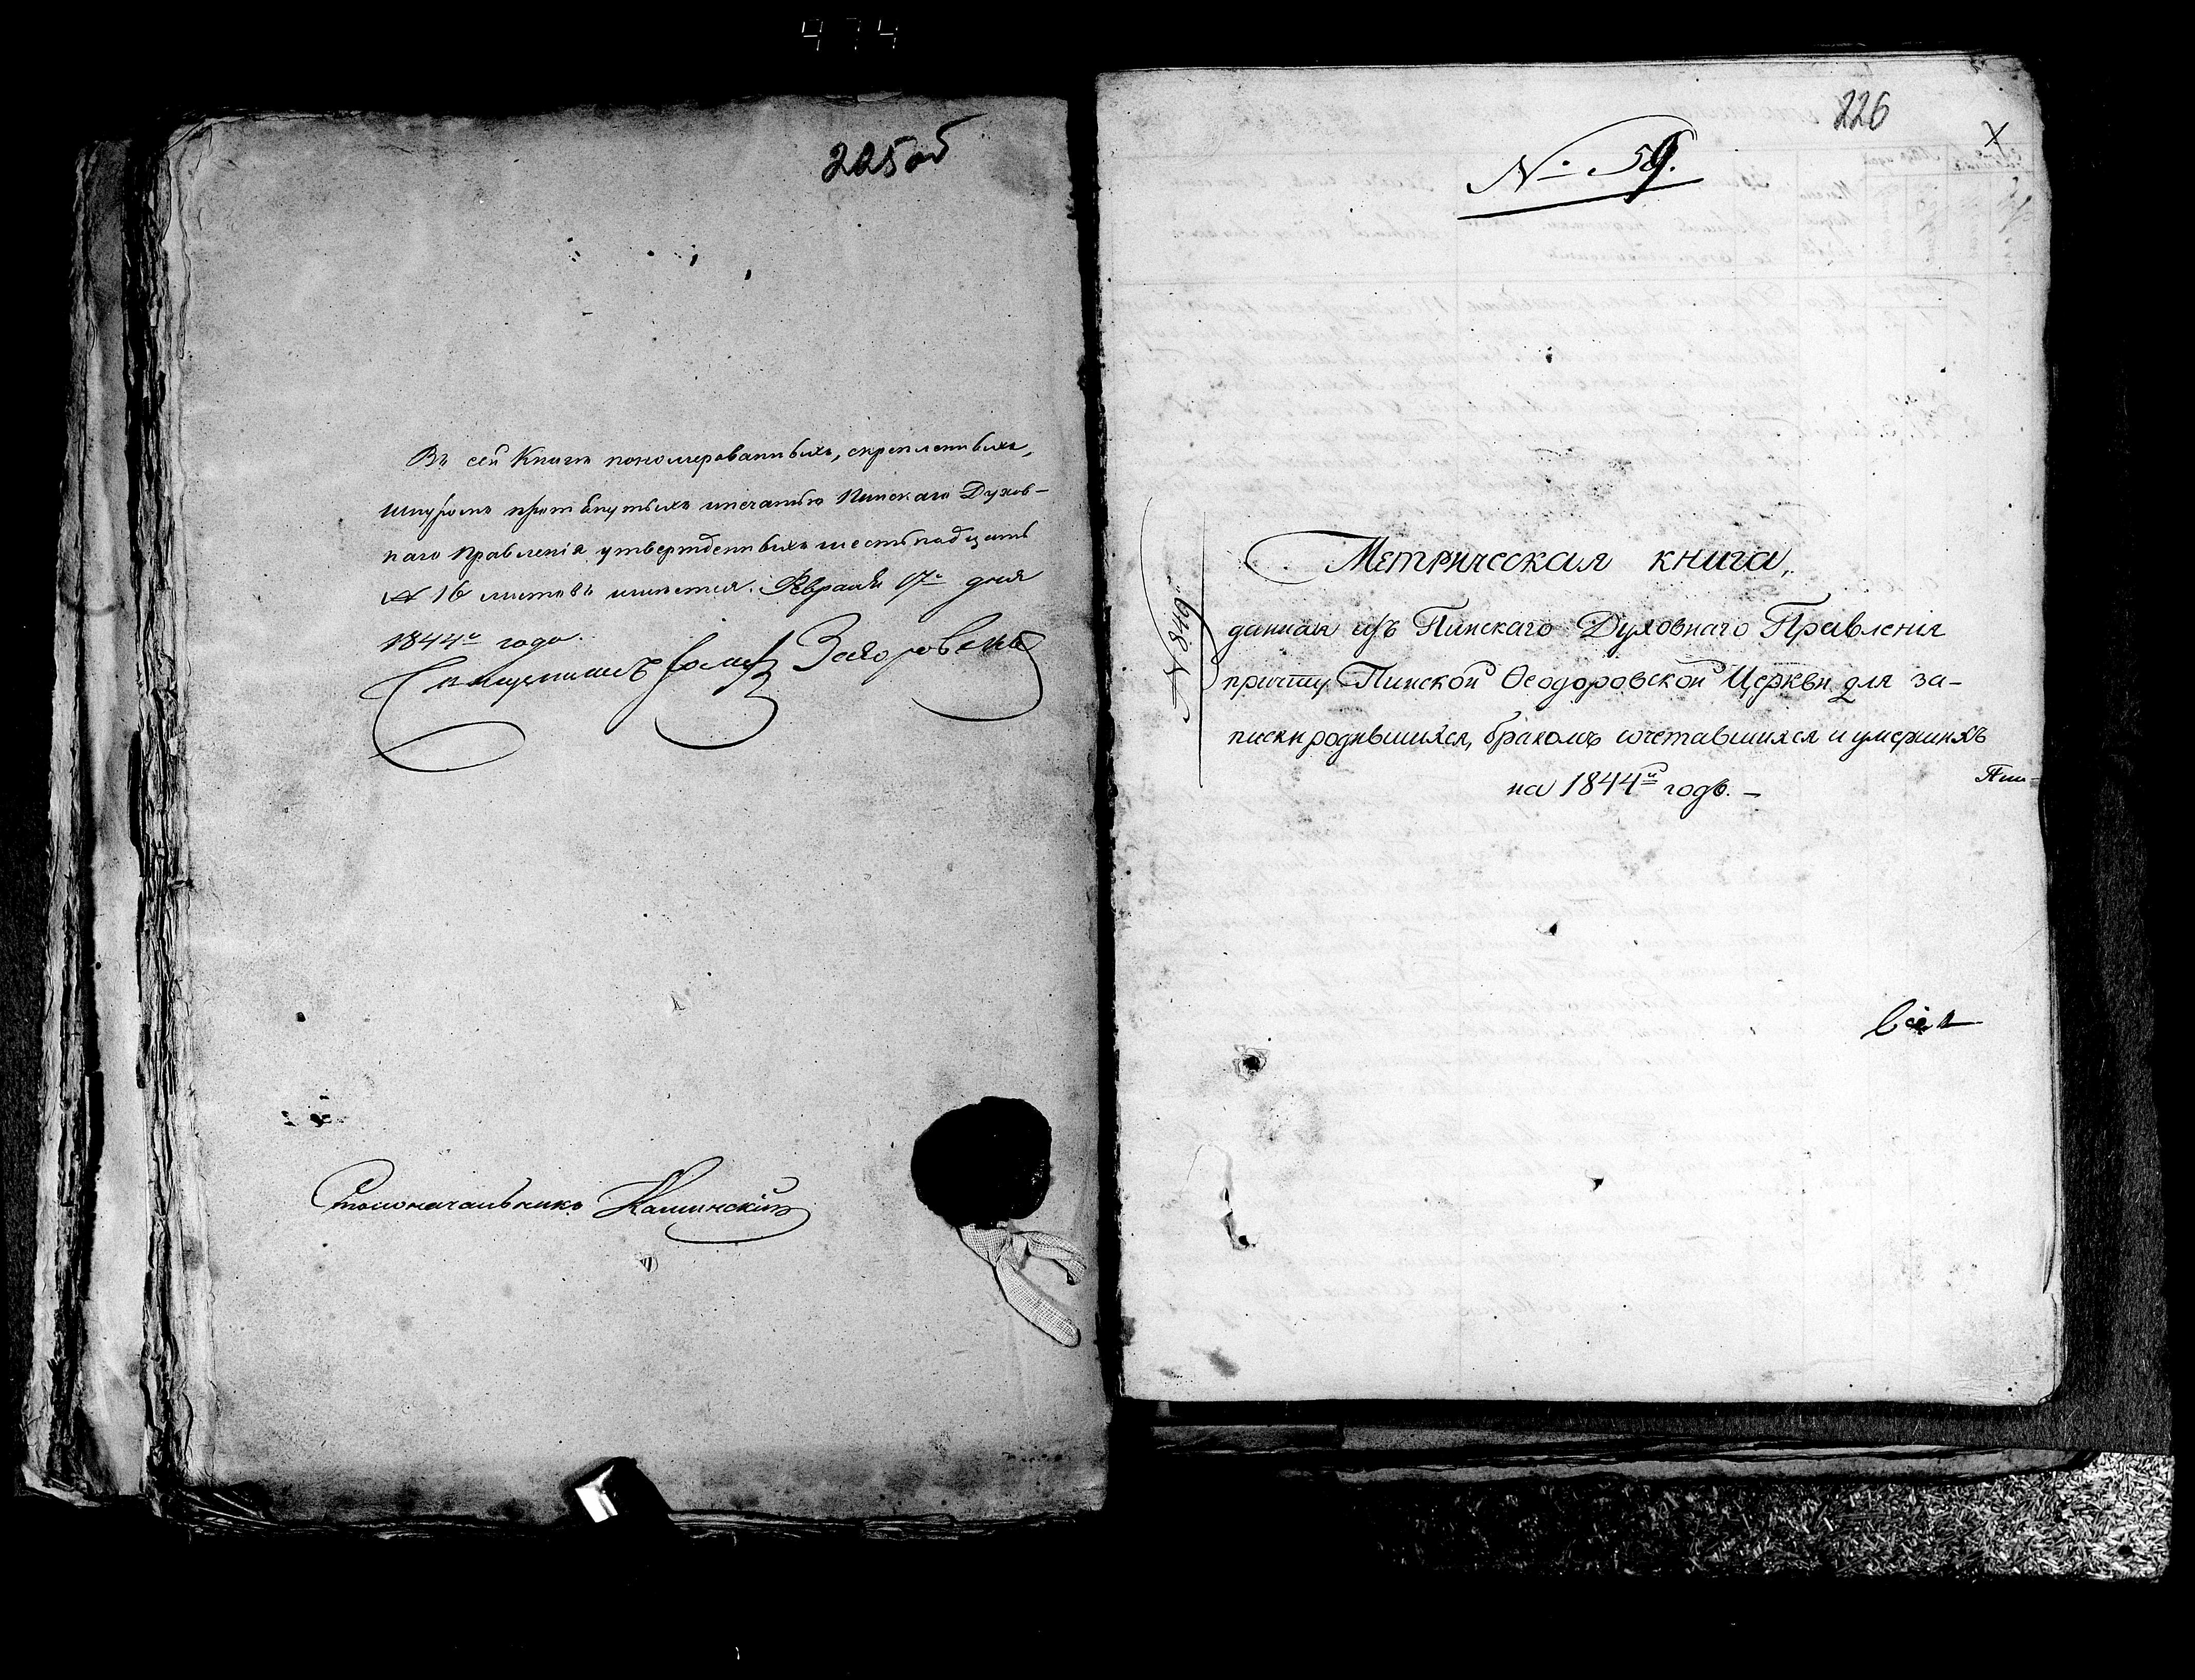 474
225об
Въ сей Книги пономерованныхъ, скрепленныхъ,
шнуромъ протянутыхъ ипечатью Пинскаго Духов-
наго Правленія утвержденныхъ шестьнадцать
16 листовъ имѣется. Февраля 17го дня
1844го года.
Священникъ
Столоначальникъ
226
X
№ 59.
Метрическая книга,
данная изъ Пинскаго Духовнаго Правленія
причту Пинской Ѳеодоровской Церкви для за-
писки родившихся, бракомъ сочетавшихся и умершихъ
на 1844й годъ. —
Пин-
№ 849